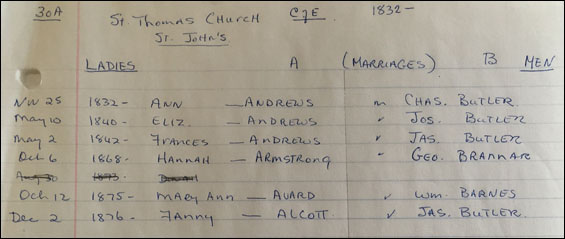 30A St. Thomas Church C of E 1832-
St. John's
LADIES A (MARRIAGES) B MEN
Nov 25 1832- ANN — ANDREWS m CHAS. BUTLER
May 10 1840- ELIZ. — ANDREWS " JOS. BUTLER
May 2 1842- FRANCES — ANDREWS " JAS. BUTLER
Oct 6 1868- HANNAH — ARMSTRONG " GEO. BRANNAR
Oct 12 1875- MARY ANN — AVARD " WM. BARNES
Dec 2 1876- FANNY — ALCOTT " JAS. BUTLER